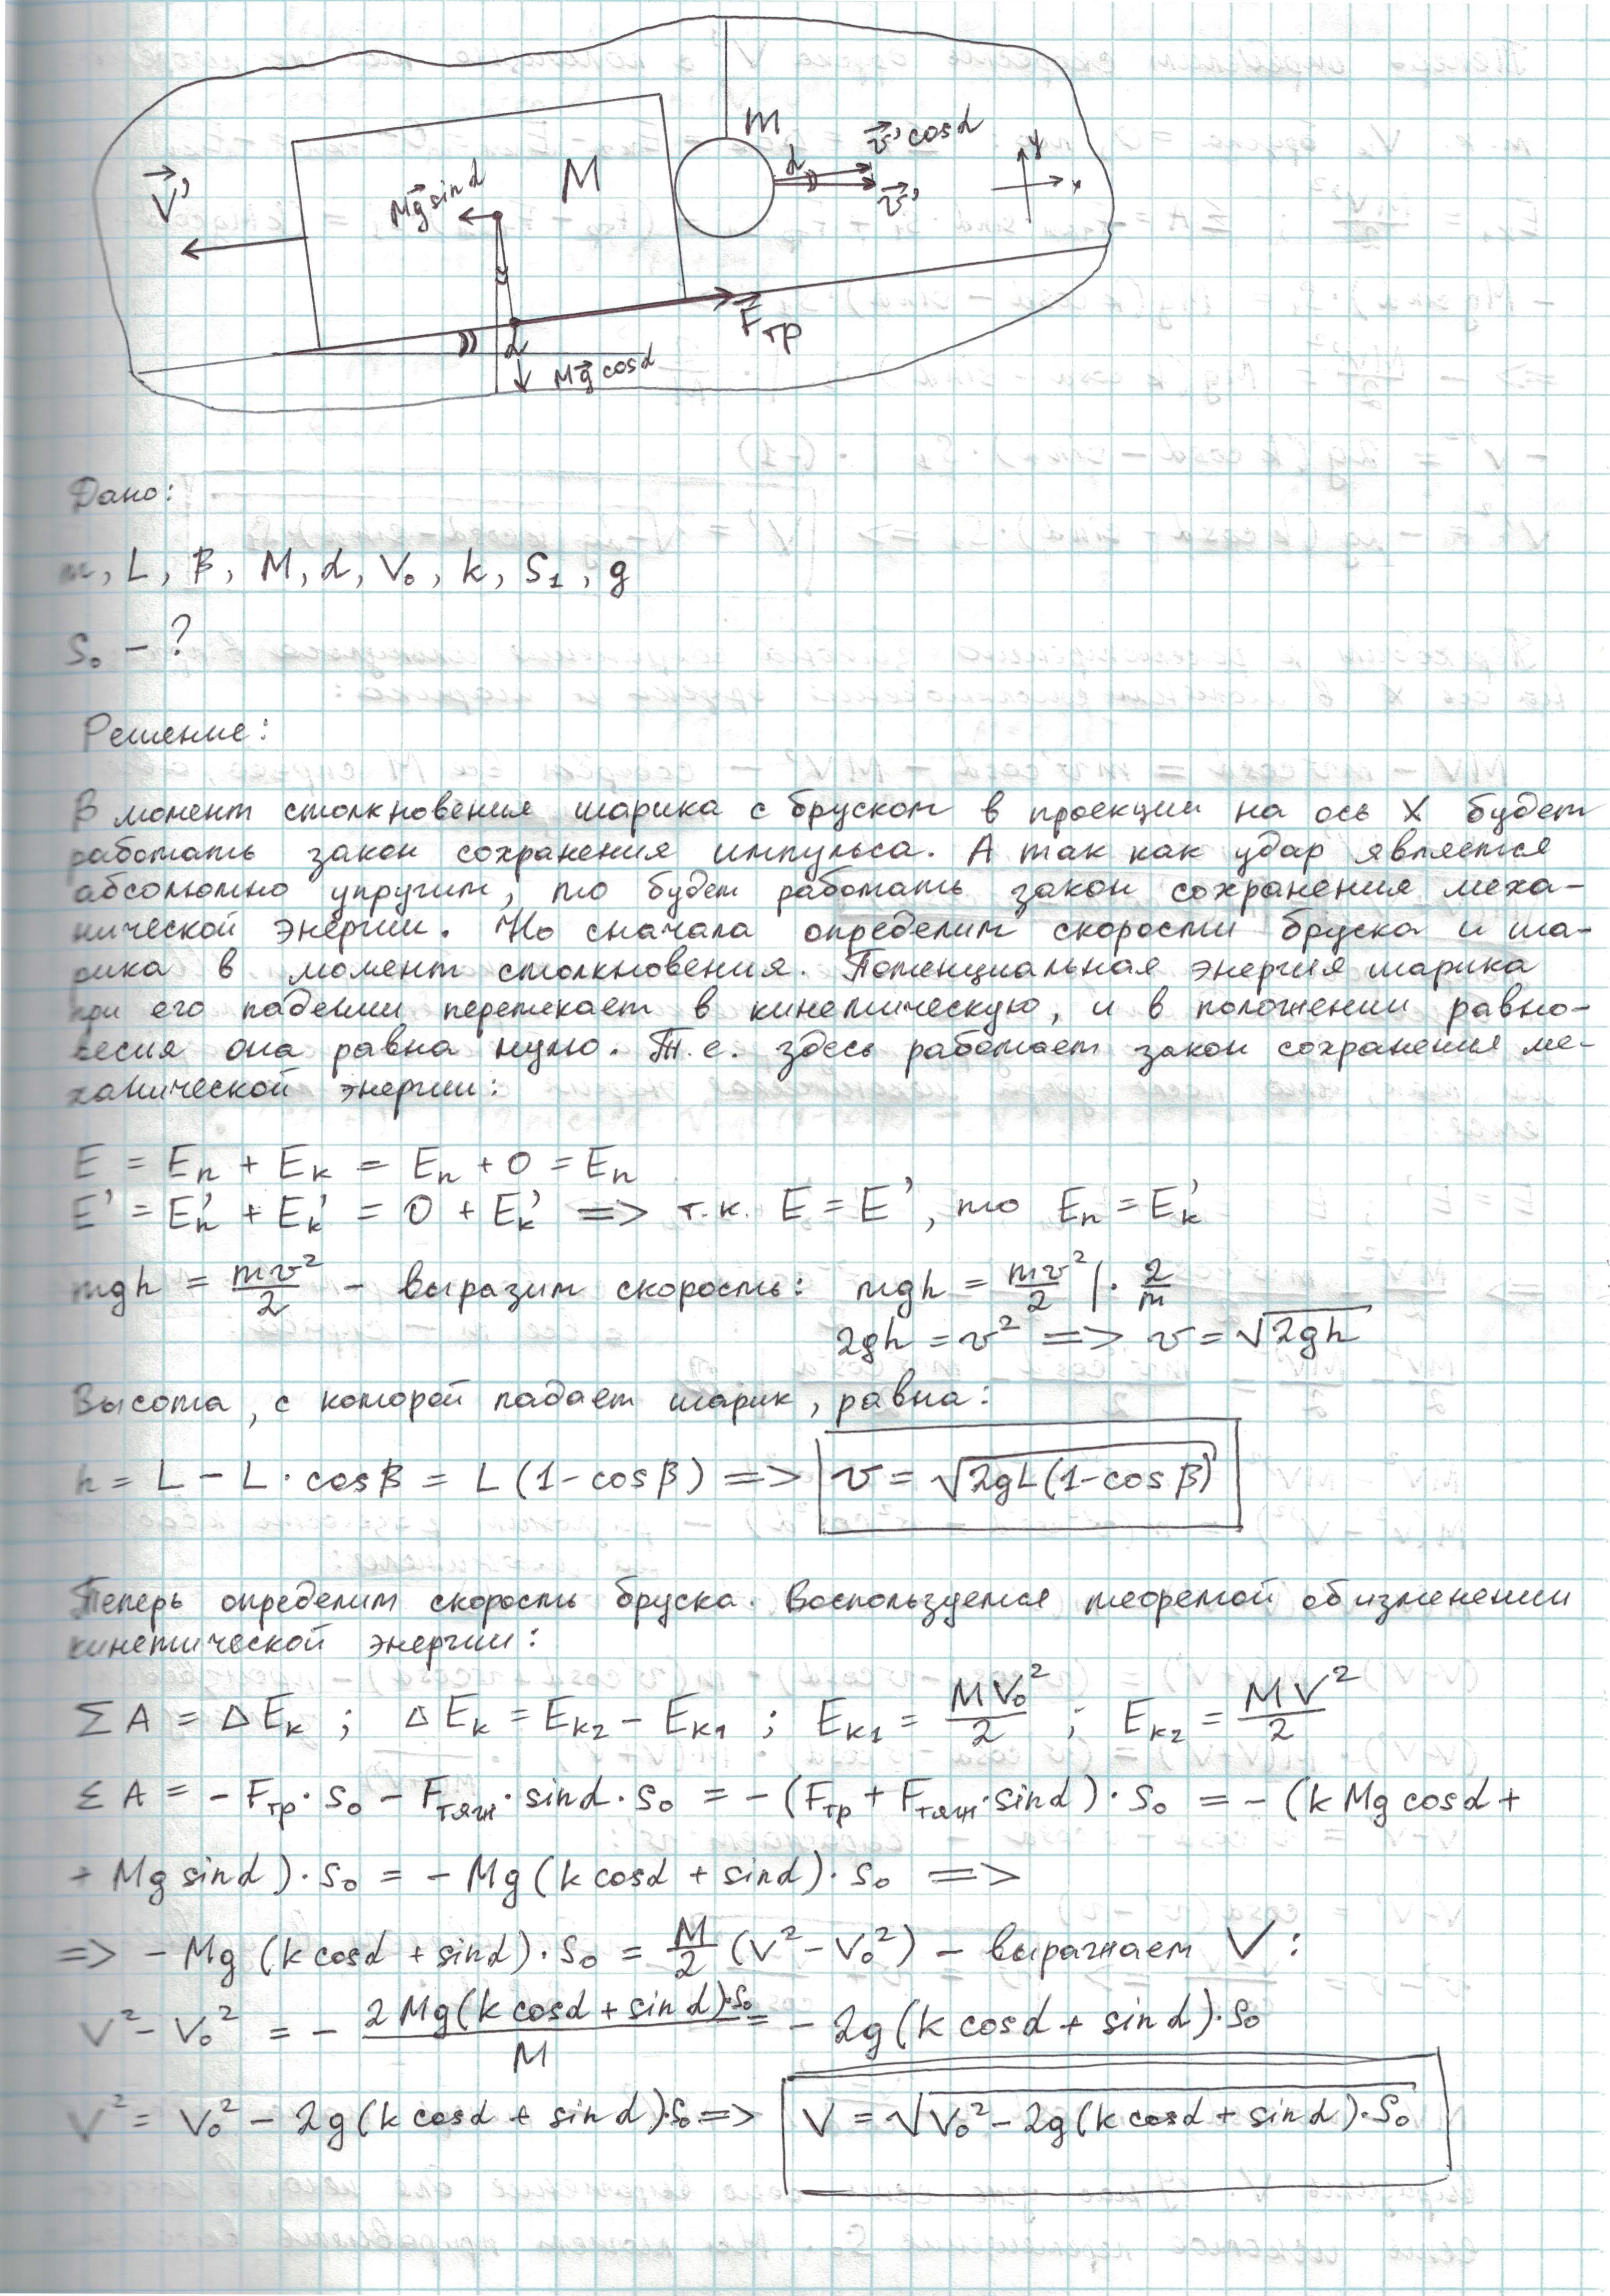 m
v⃗' cosα
α
M
y
x
V⃗'
Mg⃗ sinα
v⃗'
F⃗тр
α
Mg⃗ cosα
Дано:
m, L, β, M, α, V₀, k, S₁, g
S₀ - ?
Решение:
В момент столкновения шарика с бруском в проекции на ось X будет
работать закон сохранения импульса. А так как удар является
абсолютно упругим, то будет работать закон сохранения меха-
нической энергии. Но сначала определим скорости бруска и ша-
рика в момент столкновения. Потенциальная энергия шарика
при его падении перетекает в кинетическую, и в положении равно-
весия она равна нулю. Т.е. здесь работает закон сохранения ме-
ханической энергии:
E = Eп + Eк = Eп + 0 = Eп
E' = Eп' + Eк' = 0 + Eк' => т.к. E = E', то Eп = Eк'
mgh = mv²/2 - выразим скорость: mgh = mv²/2 | · 2/m
2gh = v² => v = √2gh
Высота, с которой падает шарик, равна:
h = L - L · cosβ = L(1-cosβ) => v = √2gL(1-cosβ)
Теперь определим скорость бруска. Воспользуемся теоремой об изменении
кинетической энергии:
ΣA = ΔEк ; ΔEк = Eк2 - Eк1 ; Eк1 = MV₀²/2 ; Eк2 = MV²/2
ΣA = - Fтр · S₀ - Fтяж · sinα · S₀ = - (Fтр + Fтяж · sinα) · S₀ = - (kMg cosα +
+ Mg sinα) · S₀ = - Mg (k cosα + sinα) · S₀ =>
=> - Mg (k cosα + sinα) · S₀ = M/2 (V² - V₀²) - выражаем V:
V² - V₀² = - 2Mg(k cosα + sinα)·S₀/M = - 2g(k cosα + sinα)·S₀
V² = V₀² - 2g(k cosα + sinα)·S₀ => V = √V₀² - 2g(k cosα + sinα)·S₀